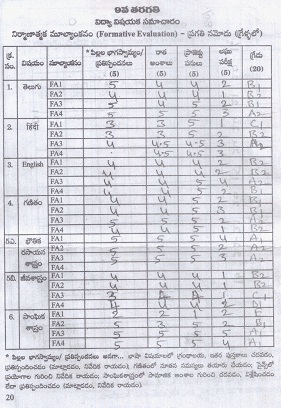 9వ తరగతి
విద్యా విషయక సమాచారం
నిర్మాణాత్మక మూల్యాంకనం (Formative Evaluation) – ప్రగతి నమోదు (గ్రేళ్ళలో)
క్ర. సం. విషయం మూల్యాంకనం * పిల్లల భాగస్వామ్యం/ ప్రతిస్పందనలు (5) రాత అంశాలు (5) ప్రాజెక్టు పనులు (5) లఘు పరీక్ష (5) గ్రేడు (20)
1. తెలుగు FA1 5 4 4 2 B1
FA2 4 4 4 1 B2
FA3 4 5 2 B1
FA4 5 5 5 3 A2
2. हिंदी FA1 3 3 5 1 C1
FA2 3 3 5 2 B2
FA3 4 4.5 4.5 3 A2
FA4 4 4.5 4.5 3
3. English FA1 4 4 4 2 B2
FA2 4 4 4 2 B2
FA3 4 4 5 4 A2
FA4 4 4 5 2 B1
4. గణితం FA1 4 4 5 2 B1
FA2 4 4 5 3 B1
FA3 5 5 5 2 A2
FA4 4 4 5 1 B2
5ఎ. భౌతిక రసాయన శాస్త్రం FA1 5 5 5 4 A1
FA2 5 5 5 2 A2
FA3 5 5 5 3 A2
FA4
5బి. జీవశాస్త్రం FA1 4 4 4 1 B2
FA2 4 4 4 1 B2
FA3 4 1 C1
FA4 4 4 2
6. సాంఘిక శాస్త్రం FA1 2 2 1 2 E
FA2 5 3 5 2 B1
FA3 5 5 5 5 A1
FA4 5 5 5 4 A1
* పిల్లల భాగస్వామ్యం/ ప్రతిస్పందనలు అనగా... భాషా విషయాలలో గ్రంథాలయ, ఇతర పుస్తకాలు చదవడం,
ప్రతిస్పందించడం (మాట్లాడడం, నివేదిక రాయడం). గణితంలో నూతన సమస్యలు తయారు చేయడం; సైన్స్‌లో
ప్రయోగాల గురించి నివేదిక రాయడం; సాంఘికశాస్త్రంలో సామాజిక అంశాల గురించి చదవడం, విశ్లేషించడం
లేదా ప్రతిస్పందించడం (మాట్లాడడం, నివేదిక రాయడం).
20